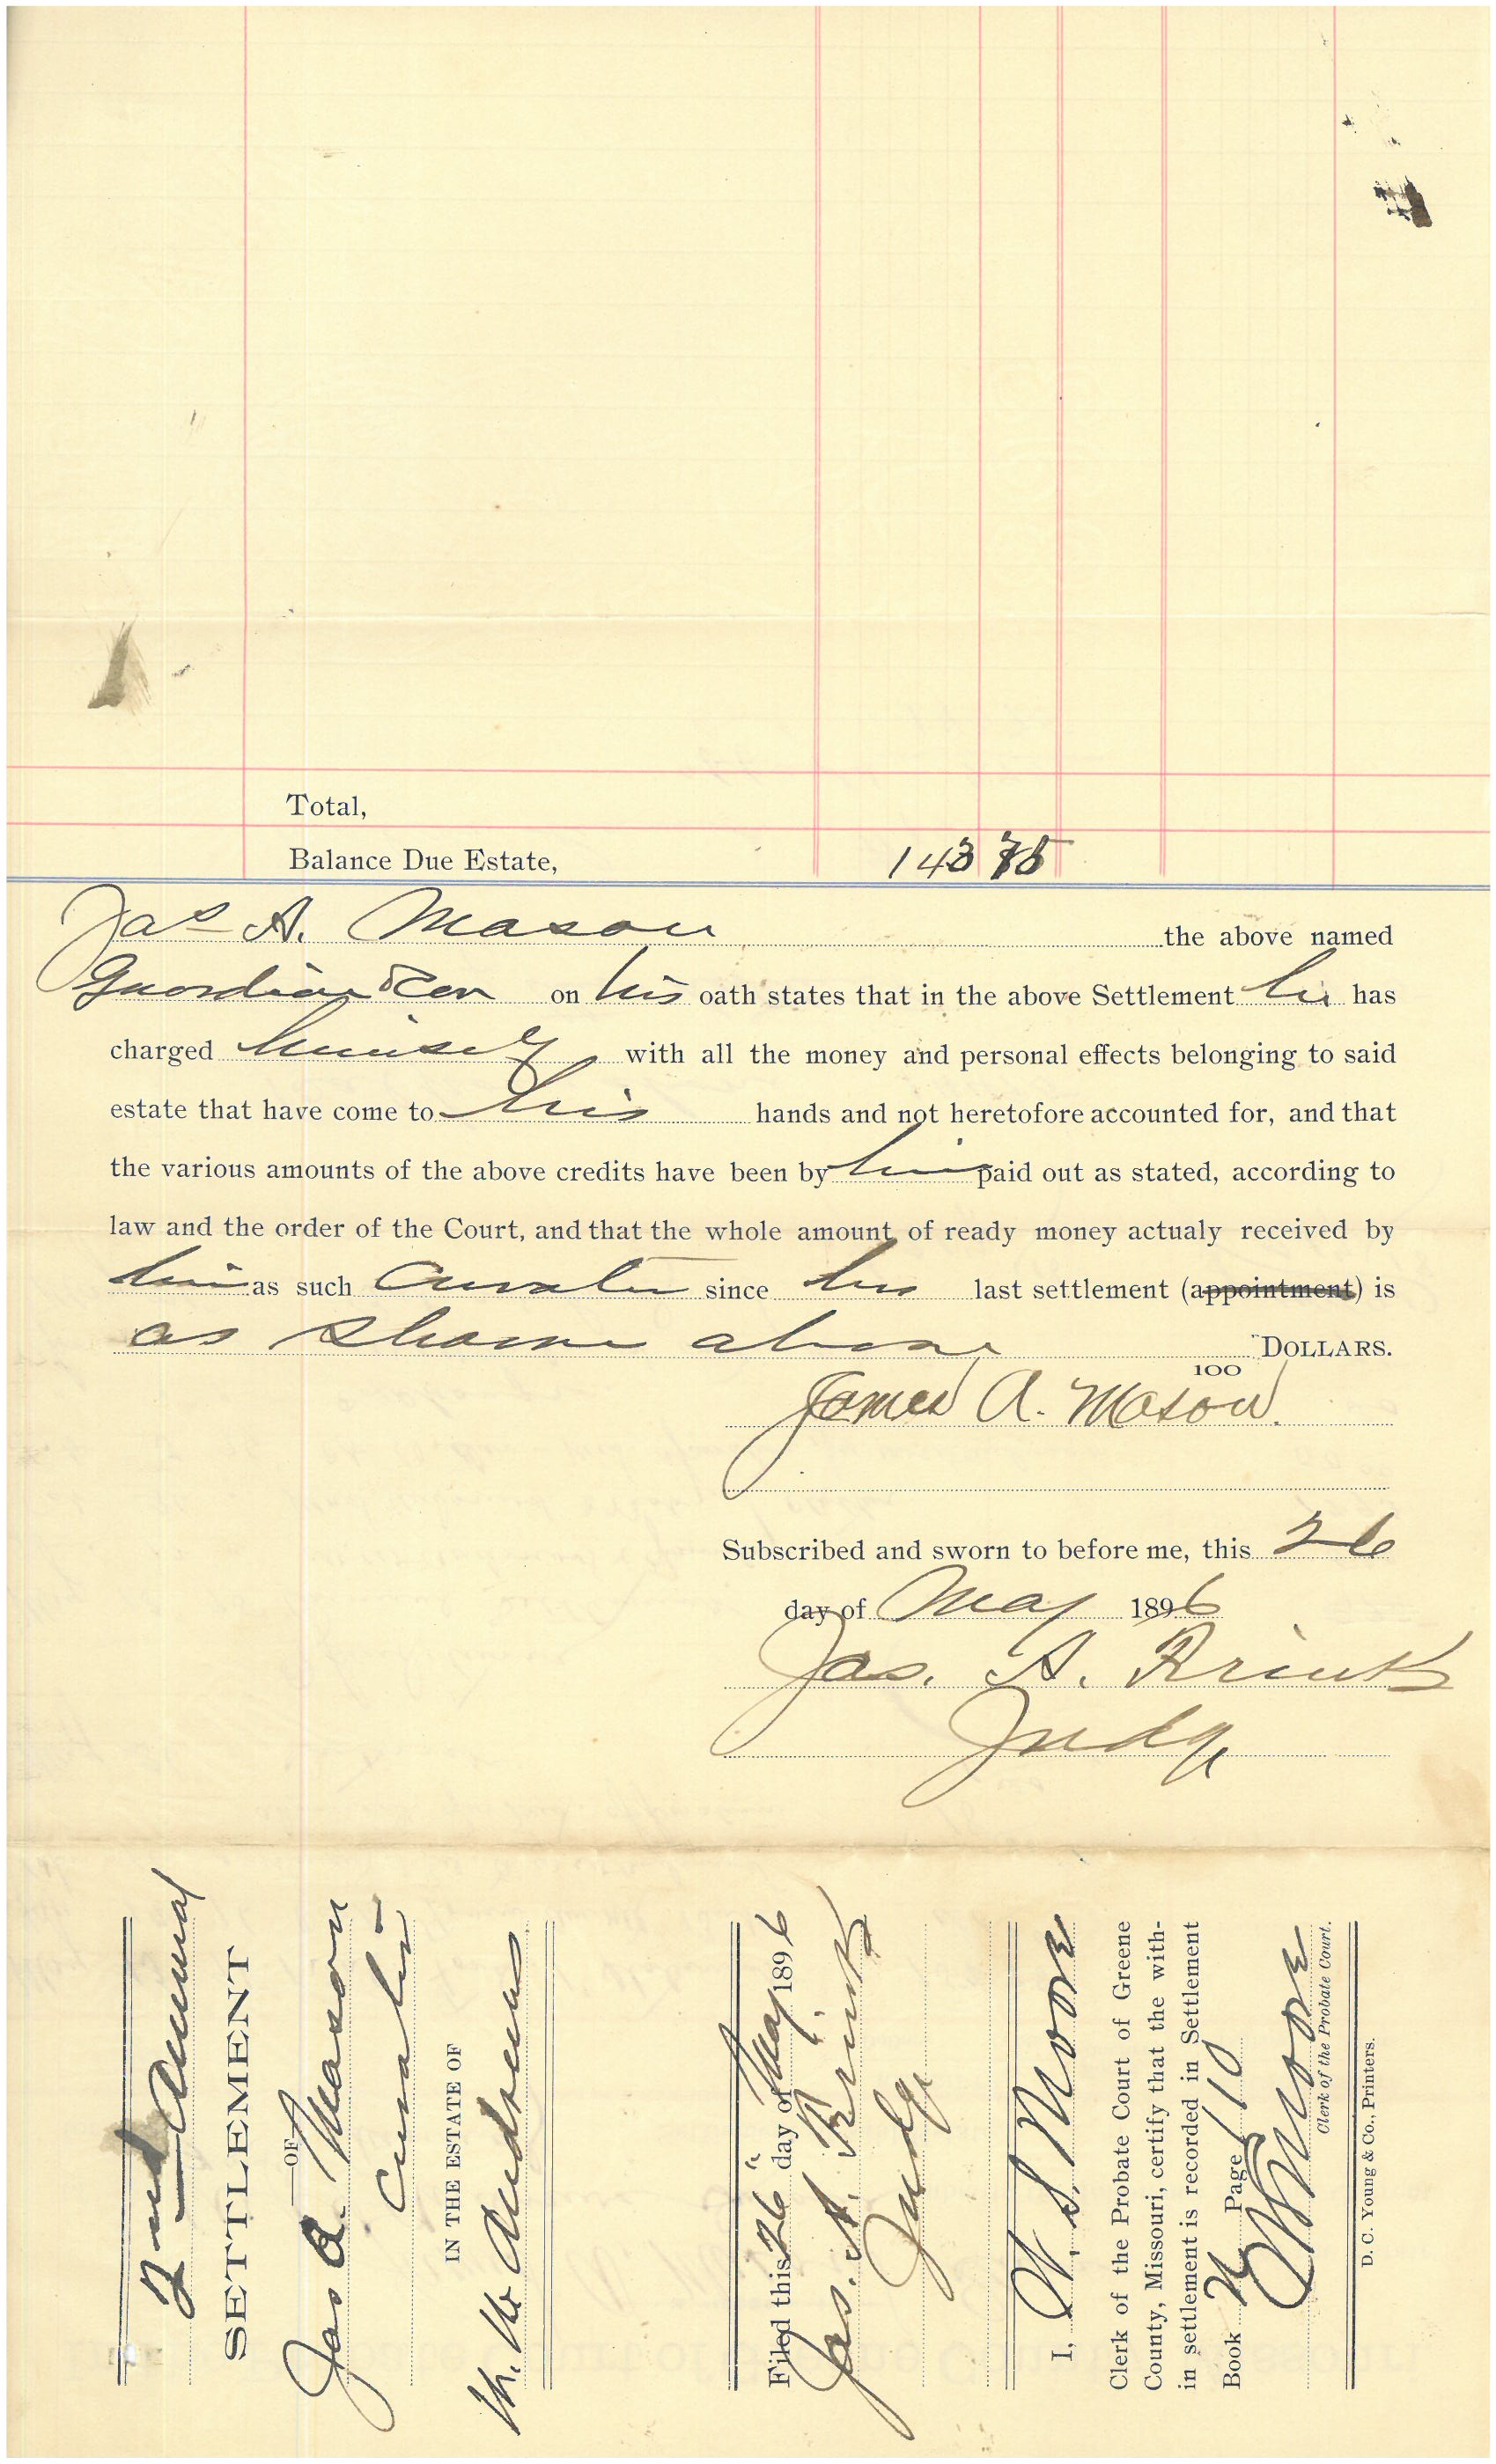 Total,
Balance Due Estate, 143 75
Jas A. Mason the above named
Guardian & Cur on his oath states that in the above Settlement he has
charged himself with all the money and personal effects belonging to said
estate that have come to his hands and not heretofore accounted for, and that
the various amounts of the above credits have been by him paid out as stated, according to
law and the order of the Court, and that the whole amount of ready money actualy received by
him as such Curator since his last settlement (appointment) is
as shown above DOLLARS.
100
James A. Mason.
Subscribed and sworn to before me, this 26
day of May 1896
Jas. A. Frink
Judge
2nd Annual
SETTLEMENT
—OF—
Jas A. Mason
Curator
IN THE ESTATE OF
M. M. Andrews
Filed this 26" day of May 1896
Jas. A. Frink
Judge
I, W. S. Moore
Clerk of the Probate Court of Greene
County, Missouri, certify that the with-
in settlement is recorded in Settlement
Book N Page 110
WSMoore
Clerk of the Probate Court.
D. C. Young & Co., Printers.